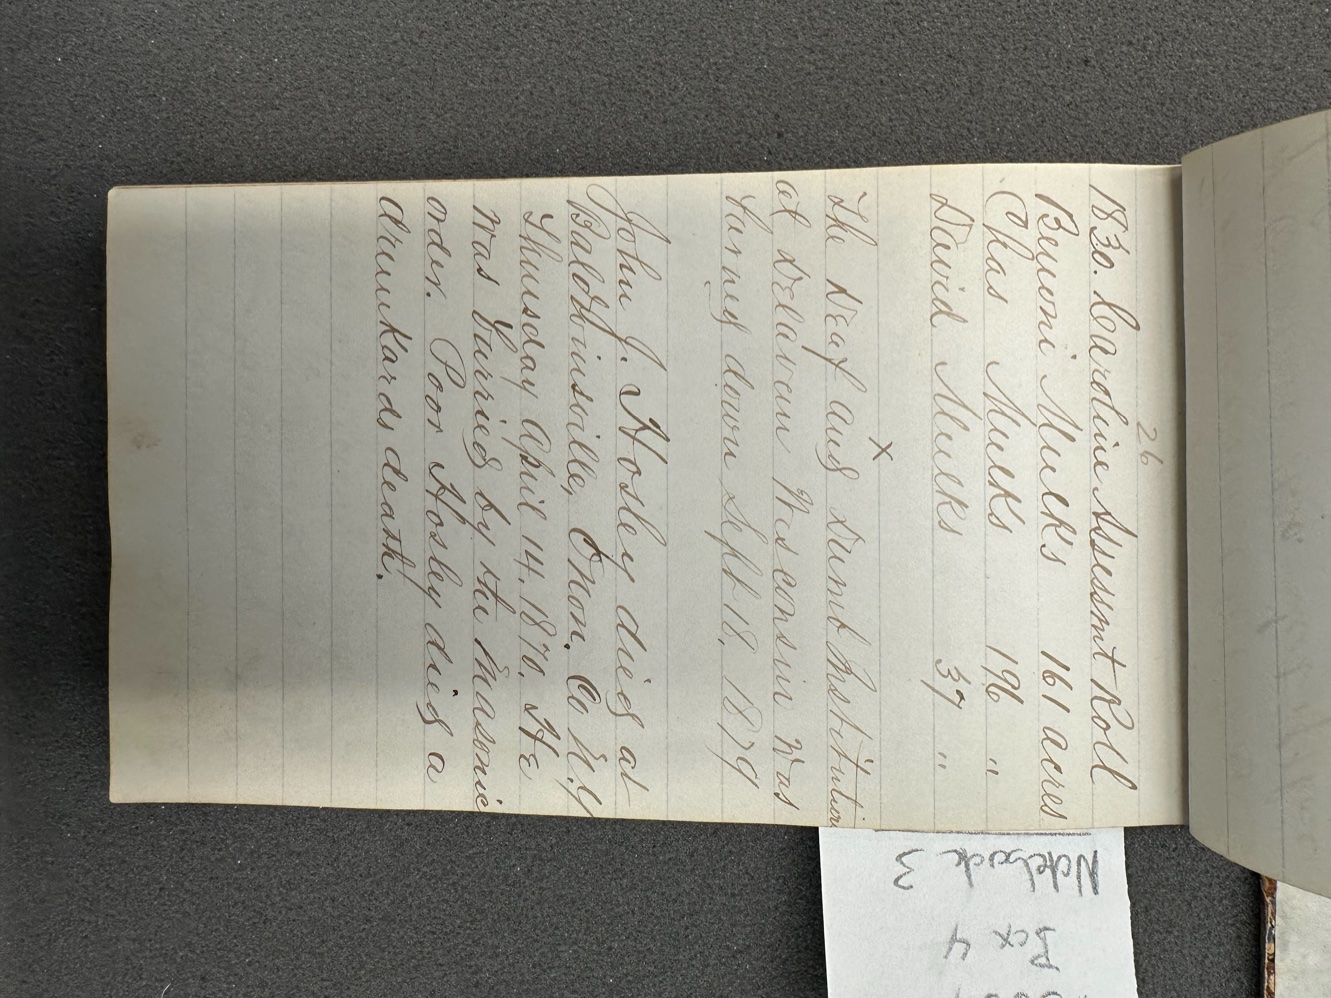 26
1830. Caroline Assessmt Roll
Benoni Mulks 161 acres
Chas Mulks 196 "
David Mulks 37 "
x
The Deaf and Dumb Institution
at Delavan Wisconsin was
burned down Sept 18, 1879
John J. Hosley died at
Baldwinsville, Onon. Co N.Y
Thursday April 14, 1870. He
was burried by the Masonic
order. Poor Hosley died a
drunkards death.
Notebook 3
Box 4